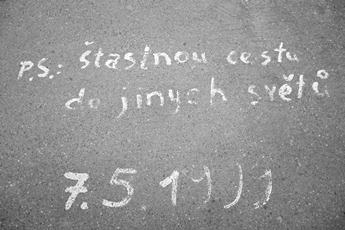 P.S.: štastnou cestu
do jiných světů
7.5.